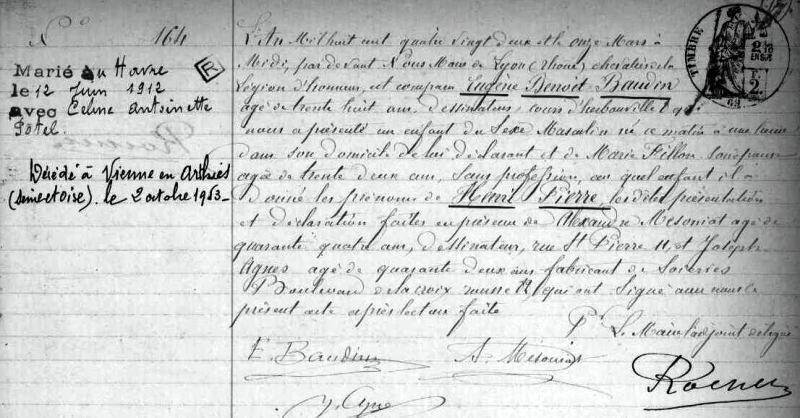 N° 164
Marié au Havre
le 12 Juin 1912
avec Celine Antoinette
Potel.
Décédé à Vienne en Arthies
(Seine et Oise). le 2 octobre 1953_
L'An Mil huit cent quatre vingt deux et le onze Mars à
Midi, par devant Nous Maire de Lyon (Rhône) chevalier de la
Légion d'honneur, est comparu Eugène Benoît Baudin
agé de trente huit ans, dessinateur, cours d'herbouville
nous a présenté un enfant du Sexe Masculin né ce matin à une heure
dans son domicile de lui déclarant et de Marie Fillon, son épouse
agée de trente deux ans, sans profession, au quel enfant il a
donné les prénoms de Henri Pierre, les dites présentation
et déclaration faites en présence de Alexandre Mesoniat agé de
quarante quatre ans, dessinateur, rue St Pierre 11, et Joseph
Agnes agé de quarante deux ans fabricant de Soieries
Boulevard de la croix rousse, qui ont signé avec nous le
présent acte après lecture faite
Pr Le Maire l'adjoint délégué
E. Baudin
A. Mesoniat
TIMBRE